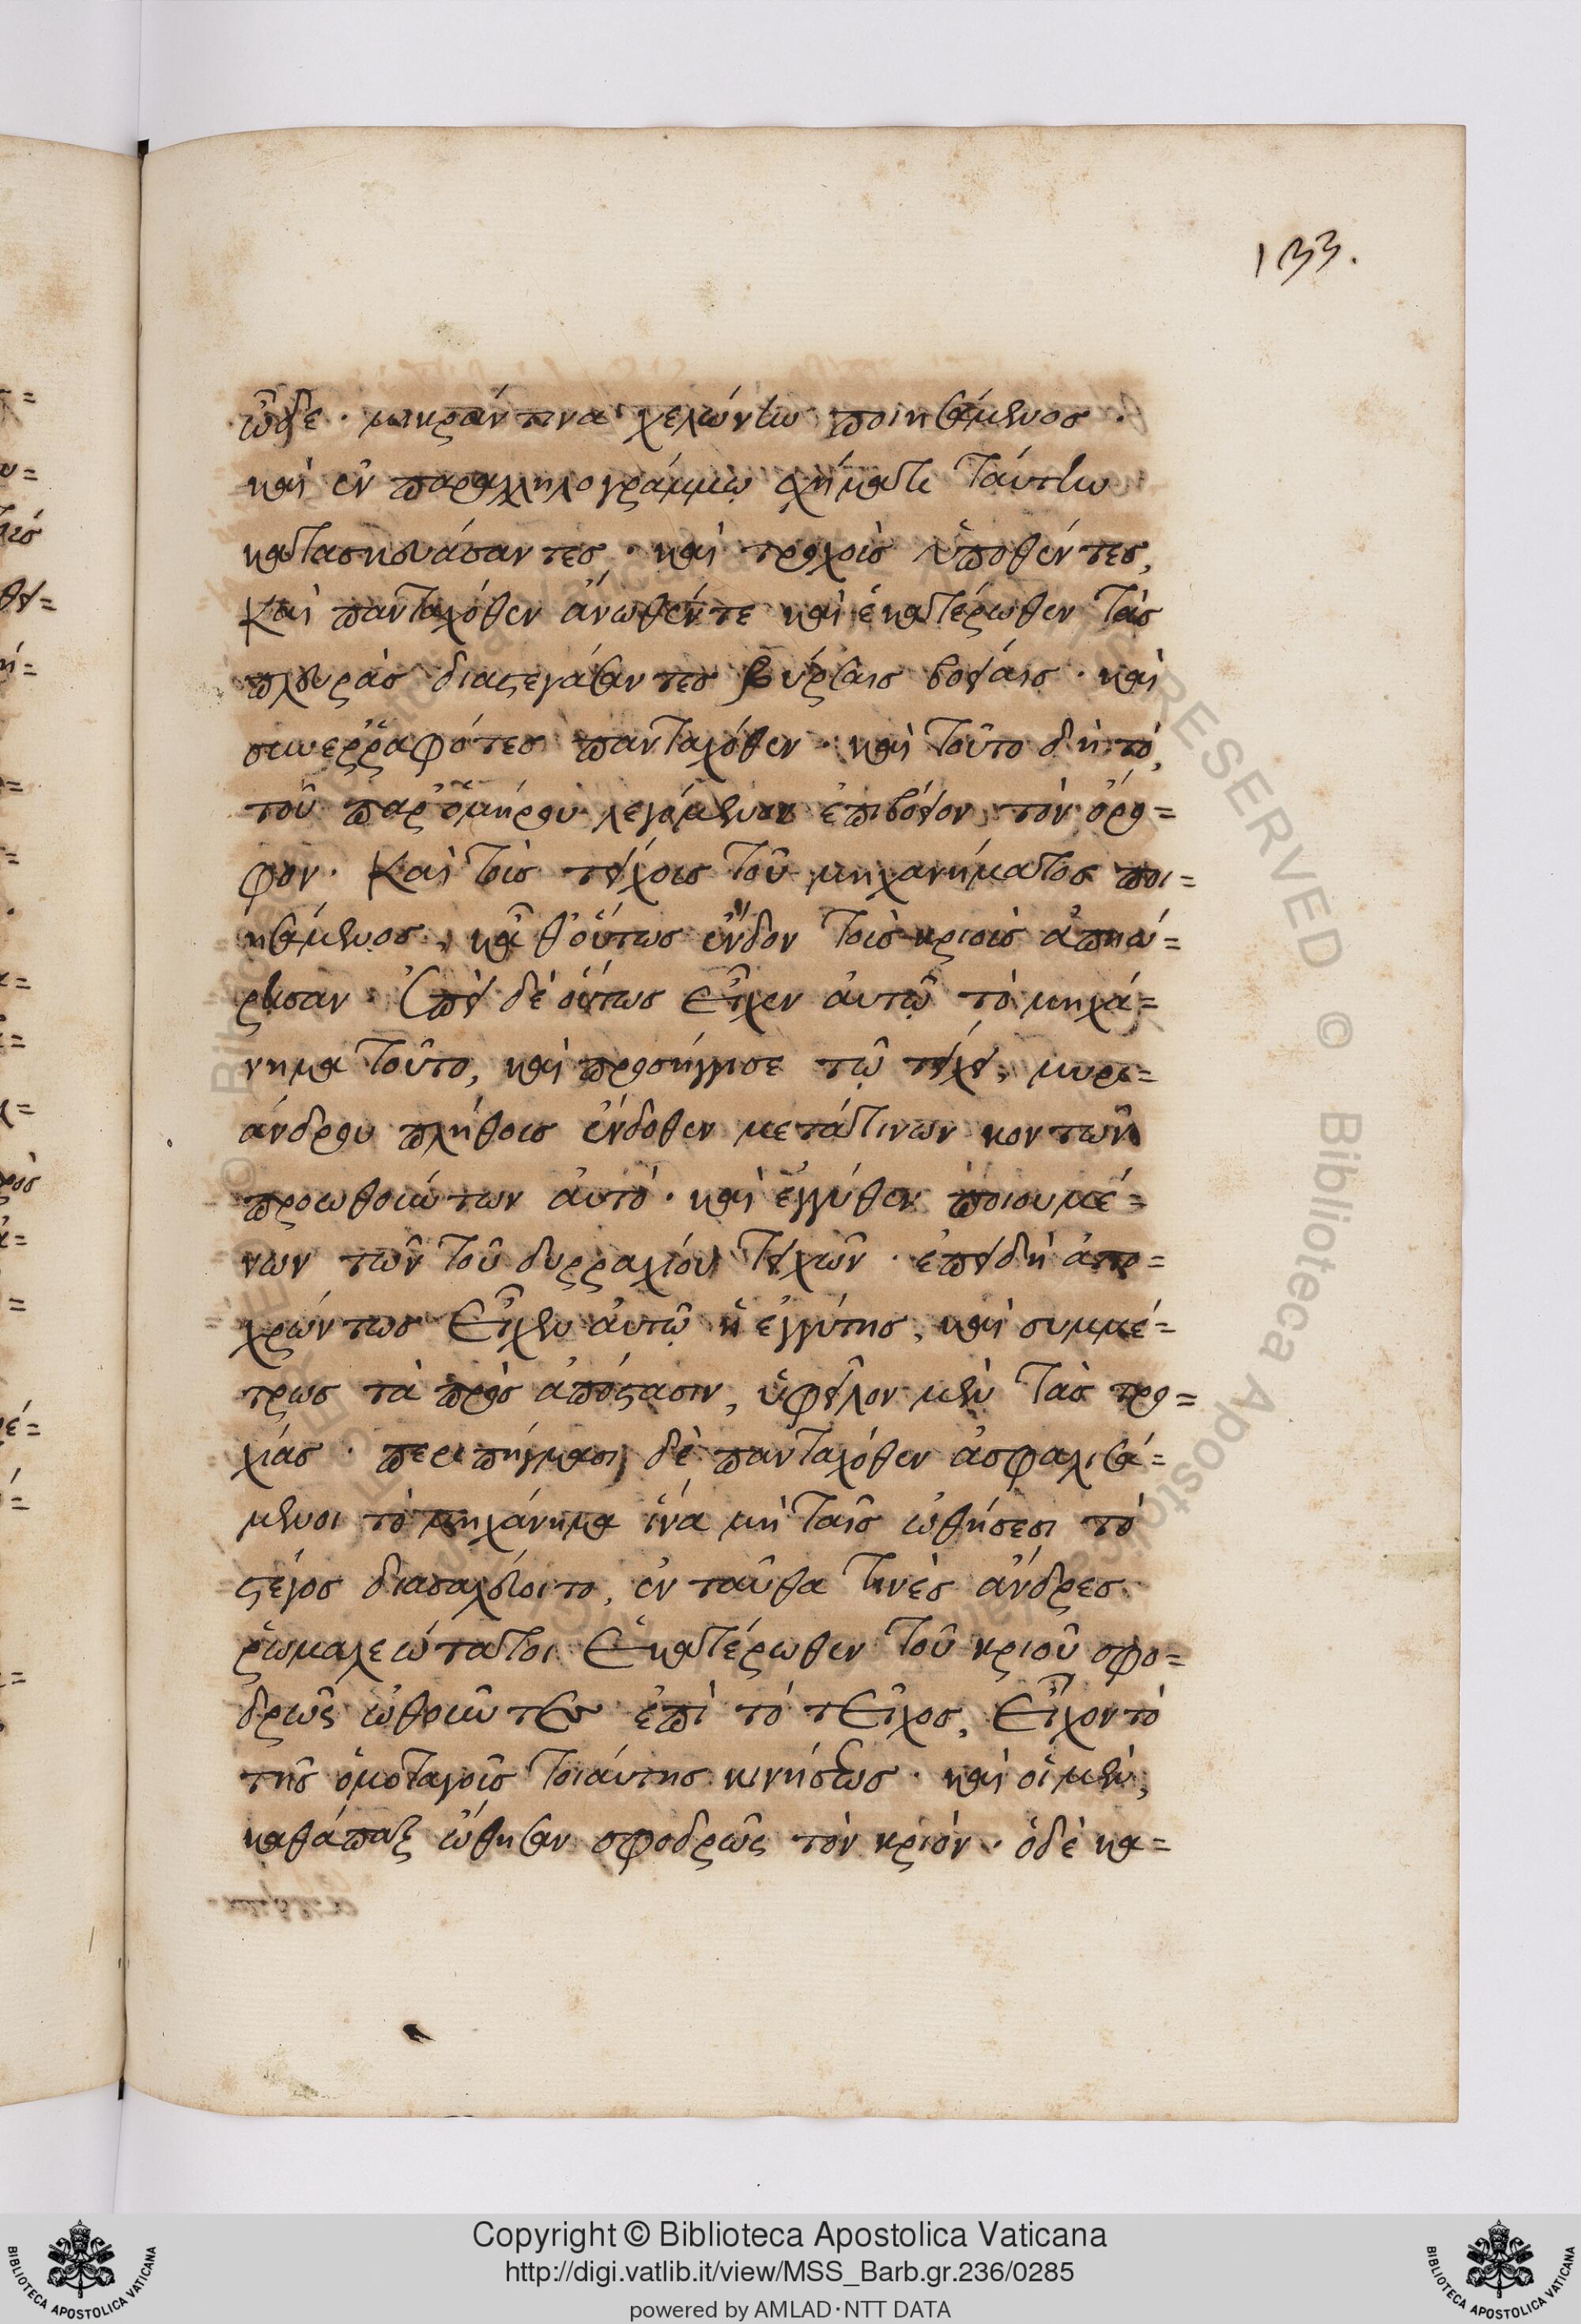 133.
ὧδε · μικράν τινα χελώνην ποιησάμενος ·
καὶ ἐν παραλληλογράμμῳ σχήματι ταύτην
κατασκευάσαντες · καὶ τροχοὶς ὑποθέντες,
Καὶ πανταχόθεν ἄνωθέντε καὶ ἑκατέρωθεν τὰς
πλευρὰς διαστεγάσαντες βύρσαις βοείαις · καὶ
συνερῤῥαφότες πανταχόθεν · καὶ τοῦτο δὴ τὸ,
τοῦ παρ' ὁμήρου λεγόμενον ἑπταβόειον τὸν ὄρο=
φον · Καὶ τοὶς τείχοις τοῦ μηχανήματος ποι=
ησάμενος, κᾆθ' οὕτως ἔνδον τοὶς κριοὶς ἀπηώ=
ρησαν · Ἐπεὶ δὲ οὕτως Εἶχεν ἀυτῷ τὸ μηχά=
νημα τοῦτο, καὶ προσήγγισε τῷ τείχει, μυρι=
άνδρου πλήθοις ἔνδοθεν μετάτινων κοντῶν
προωθούντων ἀυτὸ · καὶ ἐγγύθεν ποιουμέ=
νων τῶν τοῦ δυρραχίου τειχῶν · ἐπειδὴ ἀπο=
χρώντως Εἶχεν ἀυτῷ ἡ ἐγγύτης, καὶ συμμέ=
τρως τὰ πρὸς ἀπόστασιν, ὑφεῖλον μὲν τὰς τρο=
χιάς · περιπήγμασι δὲ πανταχόθεν ἀσφαλισά=
μενοι τὸ μηχάνημα ἵνα μὴ ταῖς ὠθήσεσι τὸ
στέγος διασαλεύοιτο, ἐνταῦθα τινὲς ἄνδρες
ῥωμαλεώτατοι Ἑκατέρωθεν τοῦ κριοῦ σφο=
δρῶς ὠθοῦντες ἐπὶ τὸ τΕῖχος, Εἴχοντο
τῆς ὁμοταγοῖς τοιάυτης κινήσεως · καὶ οἱ μὲν,
καθάπαξ ὤθησαν σφοδρῶς τὸν κριόν · ὁδὲ κα=
Copyright © Biblioteca Apostolica Vaticana
http://digi.vatlib.it/view/MSS_Barb.gr.236/0285
powered by AMLAD·NTT DATA